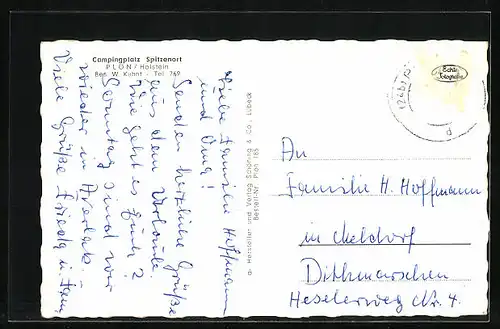 Campingplatz Spitzenort
PLÖN / Holstein
Bes. W. Kuhnt · Tel. 769
Liebe Familie Hoffmann
und Oma!
Senden herzliche Grüße
aus dem Urlaub.
Wie geht es Euch?
Sonntag sind wir
wieder in
Viele Grüße Frieda u. Fam.
Hersteller und Verlag Schöning & Co., Lübeck
Bestell-Nr. Plön 165
Echte
Fotografie
An
Familie H. Hoffmann
in Meldorf
Dithmarschen
Heselerweg Nr. 4